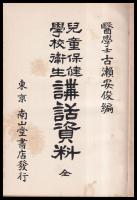 醫學士古瀬安俊編
兒童保健
學校衛生
講話資料
全
東京 南山堂書店發行